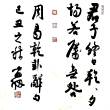 君子終日乾乾夕
惕若厲無咎
周易乾卦辭句
己丑之秋